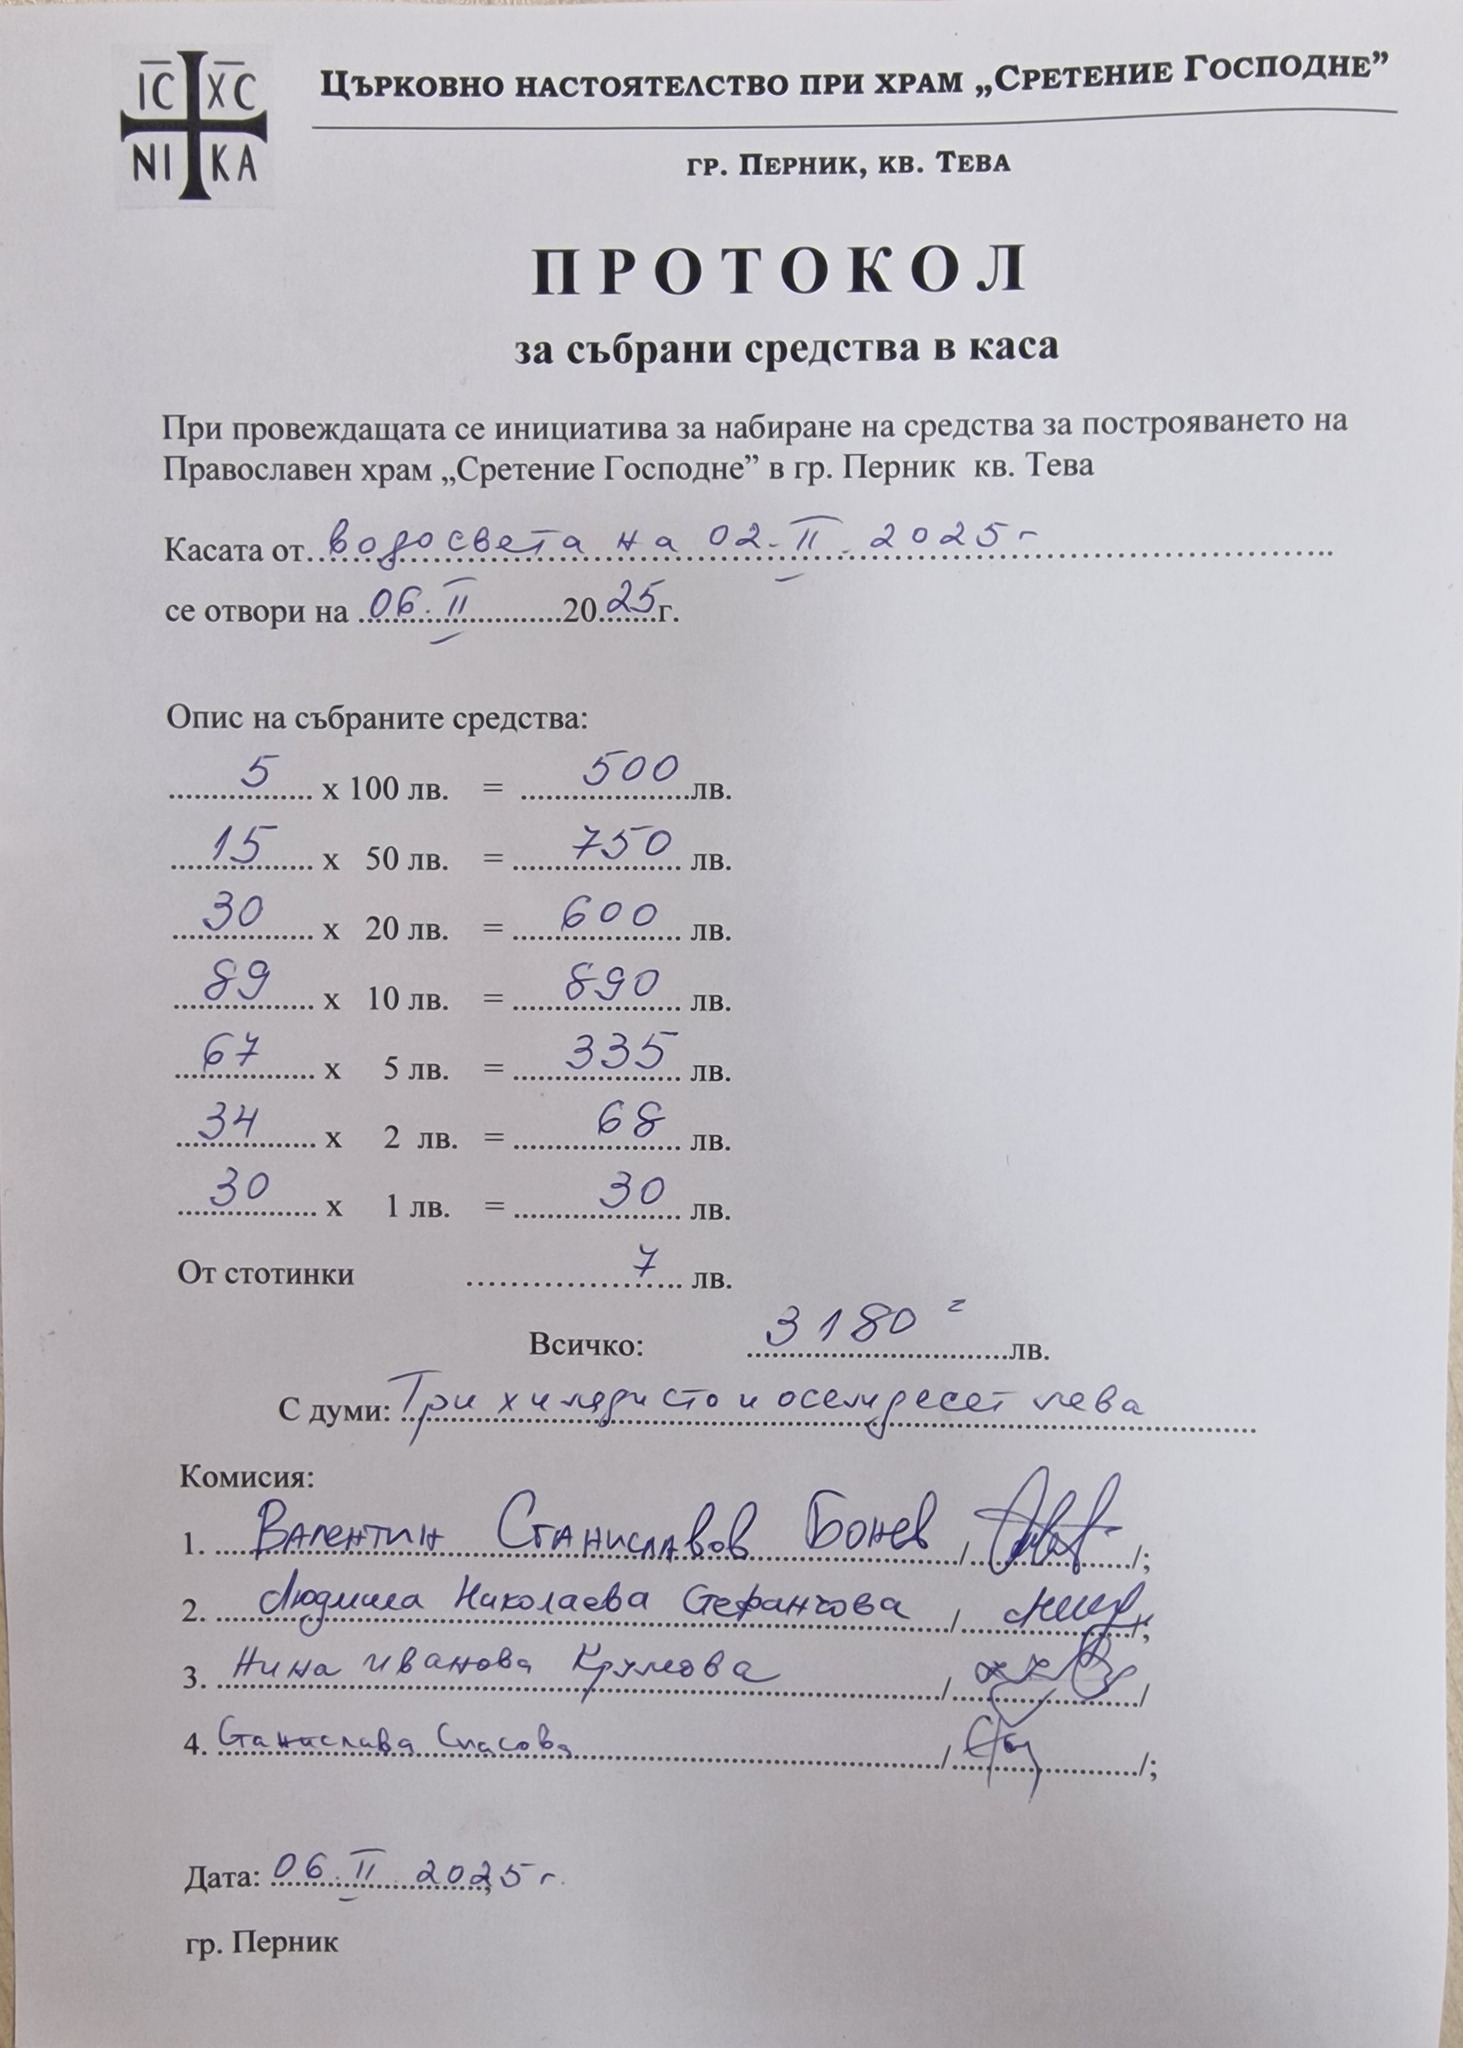 IC XC
NI KA
ЦЪРКОВНО НАСТОЯТЕЛСТВО ПРИ ХРАМ „СРЕТЕНИЕ ГОСПОДНЕ”
ГР. ПЕРНИК, КВ. ТЕВА
ПРОТОКОЛ
за събрани средства в каса
При провеждащата се инициатива за набиране на средства за построяването на
Православен храм „Сретение Господне” в гр. Перник кв. Тева
Касата от водосвета на 02.II.2025г
се отвори на 06.II 2025г.
Опис на събраните средства:
5 х 100 лв. = 500 лв.
15 х 50 лв. = 750 лв.
30 х 20 лв. = 600 лв.
89 х 10 лв. = 890 лв.
67 х 5 лв. = 335 лв.
34 х 2 лв. = 68 лв.
30 х 1 лв. = 30 лв.
От стотинки 7 лв.
Всичко: 3180 лв.
С думи: Три хиляди сто и осемдесет лева
Комисия:
1. Валентин Станиславов Бонев / /;
2. Людмила Николаева Стефанчова / /;
3. Нина Иванова Крумова / /
4. Станислава Спасова / /;
Дата: 06.II.2025г.
гр. Перник